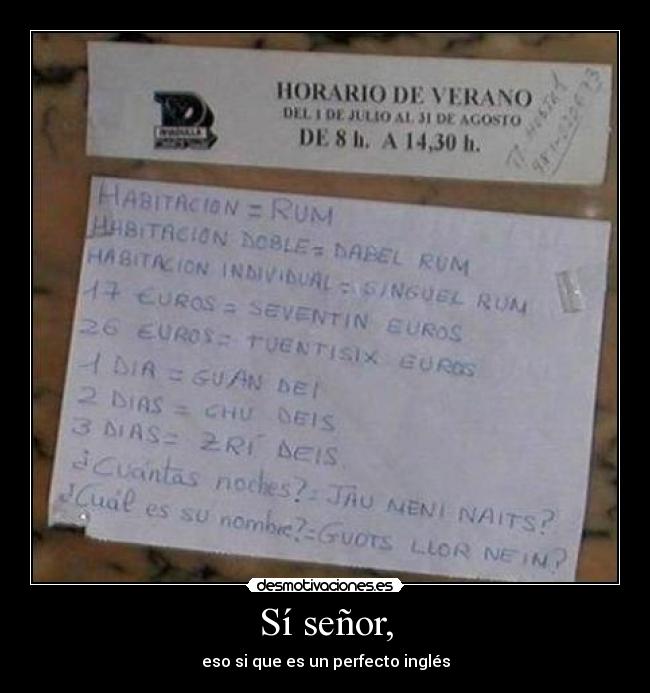 HORARIO DE VERANO
DEL 1 DE JULIO AL 31 DE AGOSTO
DE 8 h. A 14,30 h.
HABITACION = RUM
HABITACION DOBLE = DABEL RUM
HABITACION INDIVIDUAL = SINGUEL RUM
17 EUROS = SEVENTIN EUROS
26 EUROS = TUENTISIX EUROS
1 DIA = GUAN DEI
2 DIAS = CHU DEIS
3 DIAS = ZRÍ DEIS
¿Cuántas noches? = JAU MENI NAITS?
¿Cuál es su nombre? = GUOTS LLOR NEIM?
desmotivaciones.es
Sí señor,
eso si que es un perfecto inglés